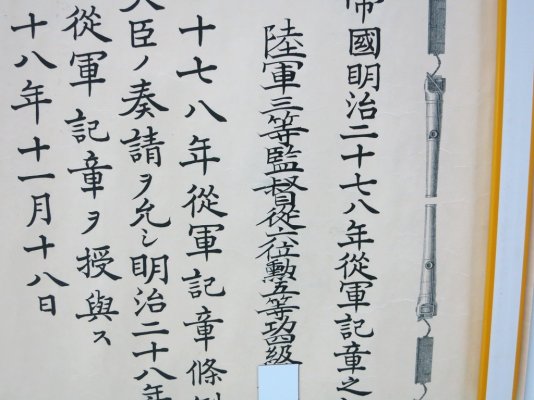 帝國明治二十七八年從軍記章之
陸軍三等監督從六位勲五等功四級
十七八年從軍記章條例
大臣ノ奏請ヲ允シ明治二十八年
從軍記章ヲ授與ス
十八年十一月十八日